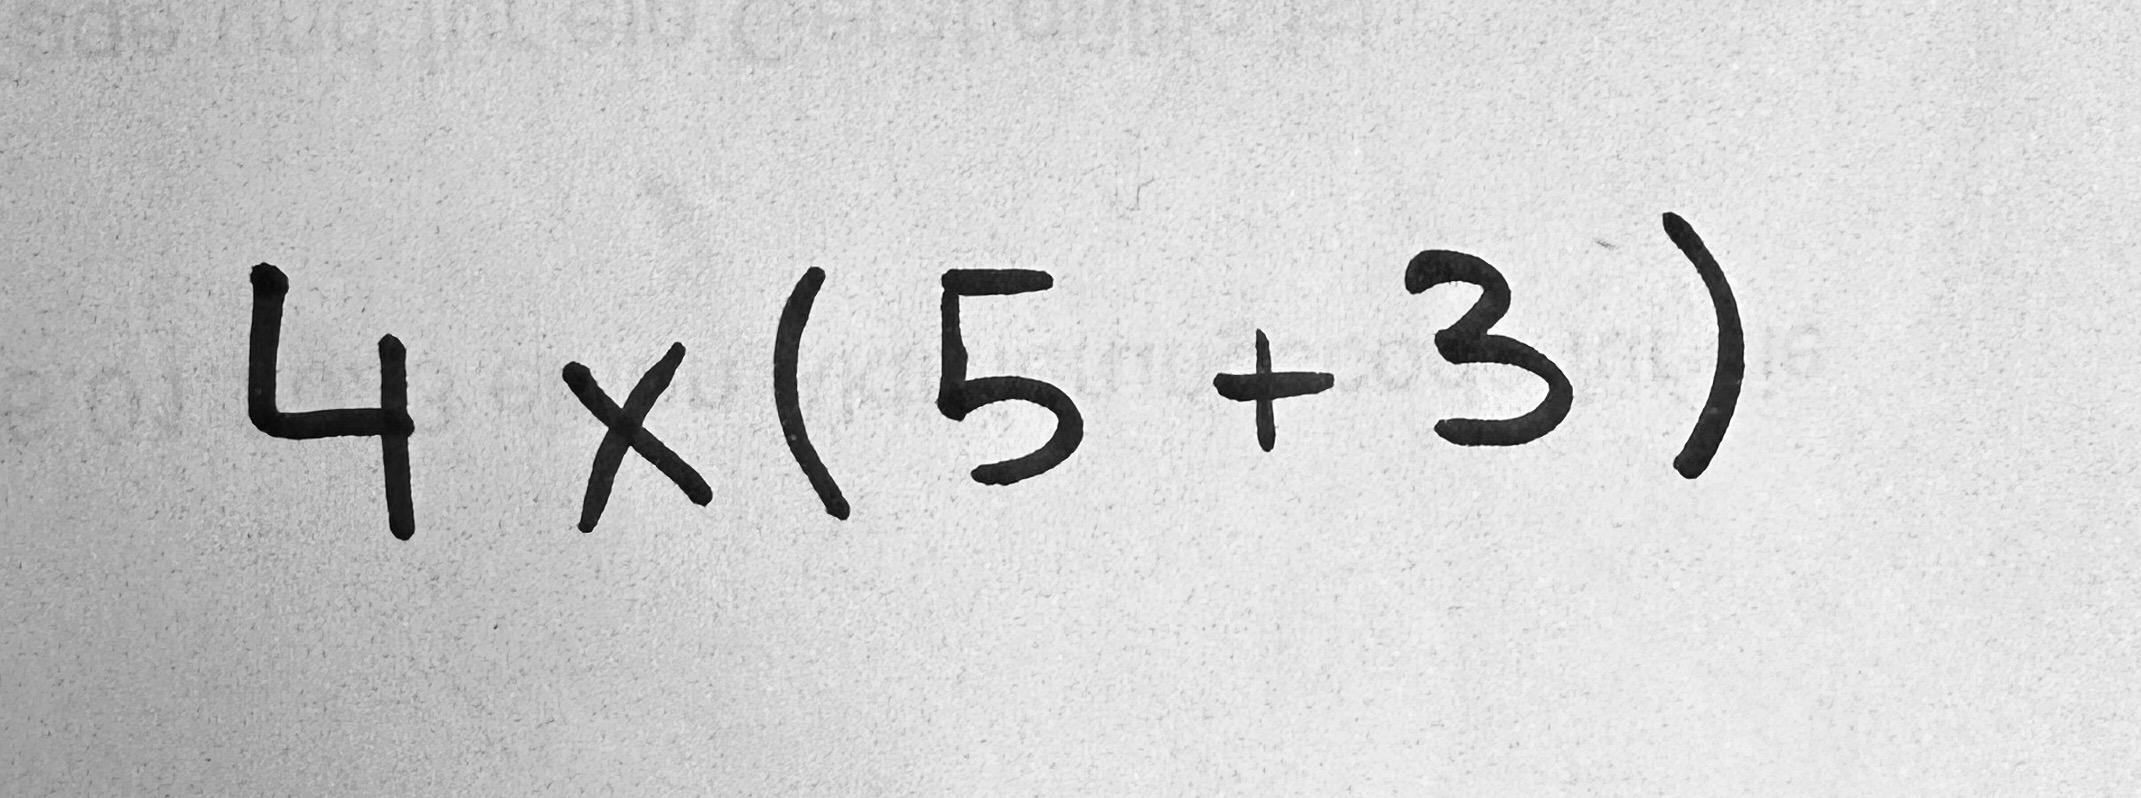 4 × (5 + 3)